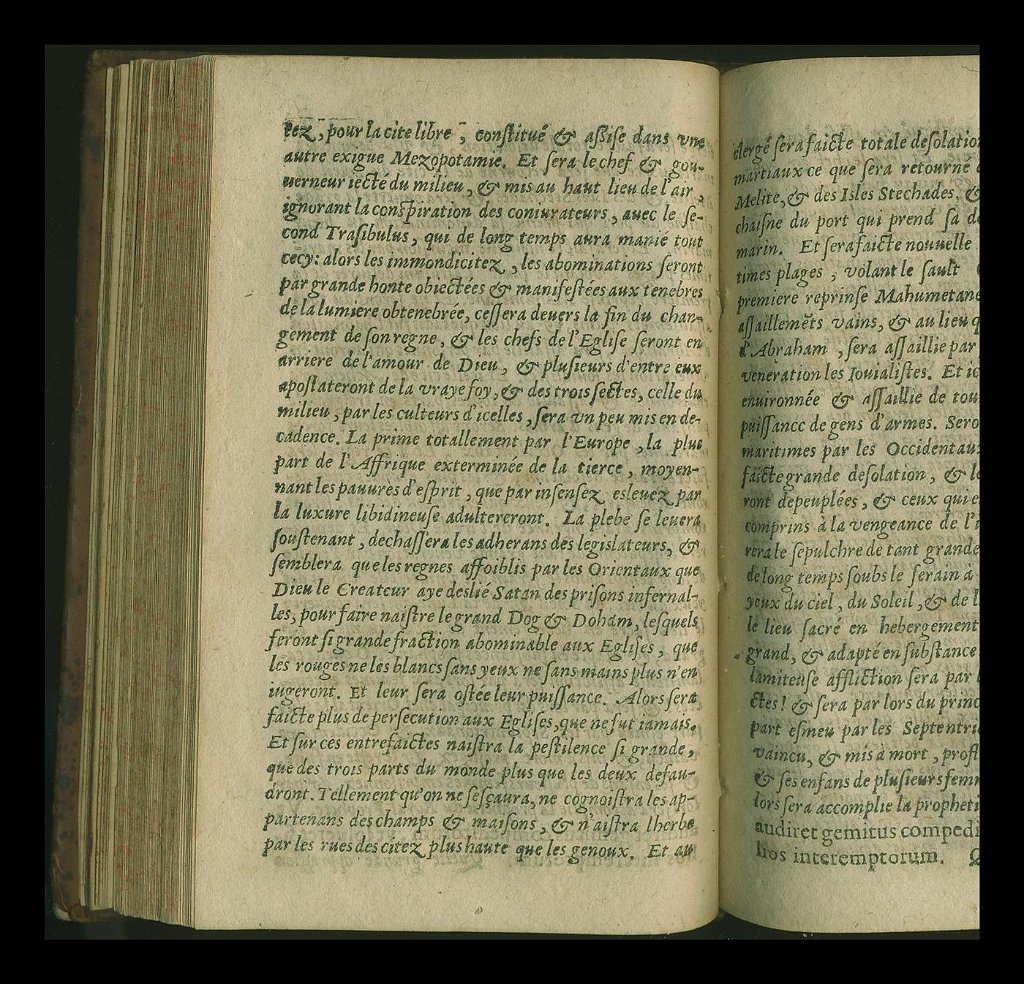 tez, pour la cite libre, constitué & assise dans vne
autre exigue Mezopotamie. Et sera le chef & gou-
uerneur iecté du milieu, & mis au haut lieu de l'air,
ignorant la conspiration des coniurateurs, auec le se-
cond Trasibulus, qui de long temps aura manié tout
cecy: alors les immondicitez, les abominations seront
par grande honte obiectées & manifestées aux tenebres
de la lumiere obtenebrée, cessera deuers la fin du chan-
gement de son regne, & les chefs de l'Eglise seront en
arriere de l'amour de Dieu, & plusieurs d'entre eux
apostateront de la vraye foy, & des trois sectes, celle du
milieu, par les culteurs d'icelles, sera vn peu mis en de-
cadence. La prime totallement par l'Europe, la plus
part de l'Affrique exterminée de la tierce, moyen-
nant les pauures d'esprit, que par insensez esleuez par
la luxure libidineuse adultereront. La plebe se leuera
soustenant, dechassera les adherans des legislateurs, &
semblera que les regnes affoiblis par les Orientaux que
Dieu le Createur aye deslié Satan des prisons infernal-
les, pour faire naistre le grand Dog & Dohàm, lesquels
feront si grande fraction abominable aux Eglises, que
les rouges ne les blancs sans yeux ne sans mains plus n'en
iugeront. Et leur sera ostée leur puissance. Alors sera
faicte plus de persecution aux Eglises, que ne fut iamais.
Et sur ces entrefaictes naistra la pestilence si grande,
que des trois parts du monde plus que les deux defau-
dront. Tellement qu'on ne sesçaura, ne cognoistra les ap-
partenans des champs & maisons, & n'aistra lherbe
par les rues des citez plus haute que les genoux. Et au
clergé sera faicte totale desolation
martiaux ce que sera retourné
Melite, & des Isles Stechades, &
chaisne du port qui prend sa
marin. Et sera faicte nouuelle
times plages, volant le sault
premiere reprinse Mahumetane
assaillemẽts vains, & au lieu
d'Abraham, sera assaillie par
veneration les Iouialistes. Et
enuironnée & assaillie de
puissance de gens d'armes.
maritimes par les Occidentaux
faicte grande desolation, &
ront depeuplées, & ceux qui
comprins à la vengeance de
rera le sepulchre de tant grande
de long temps soubs le serain à
yeux du ciel, du Soleil, & de
le lieu sacré en hebergement
grand, & adapté en substance
lamiteuse affliction sera par
ctes! & sera par lors du
part esmeu par les
vaincu, & mis à mort,
& ses enfans de plusieurs
lors sera accomplie la
audiret gemitus
lios interemptorum.